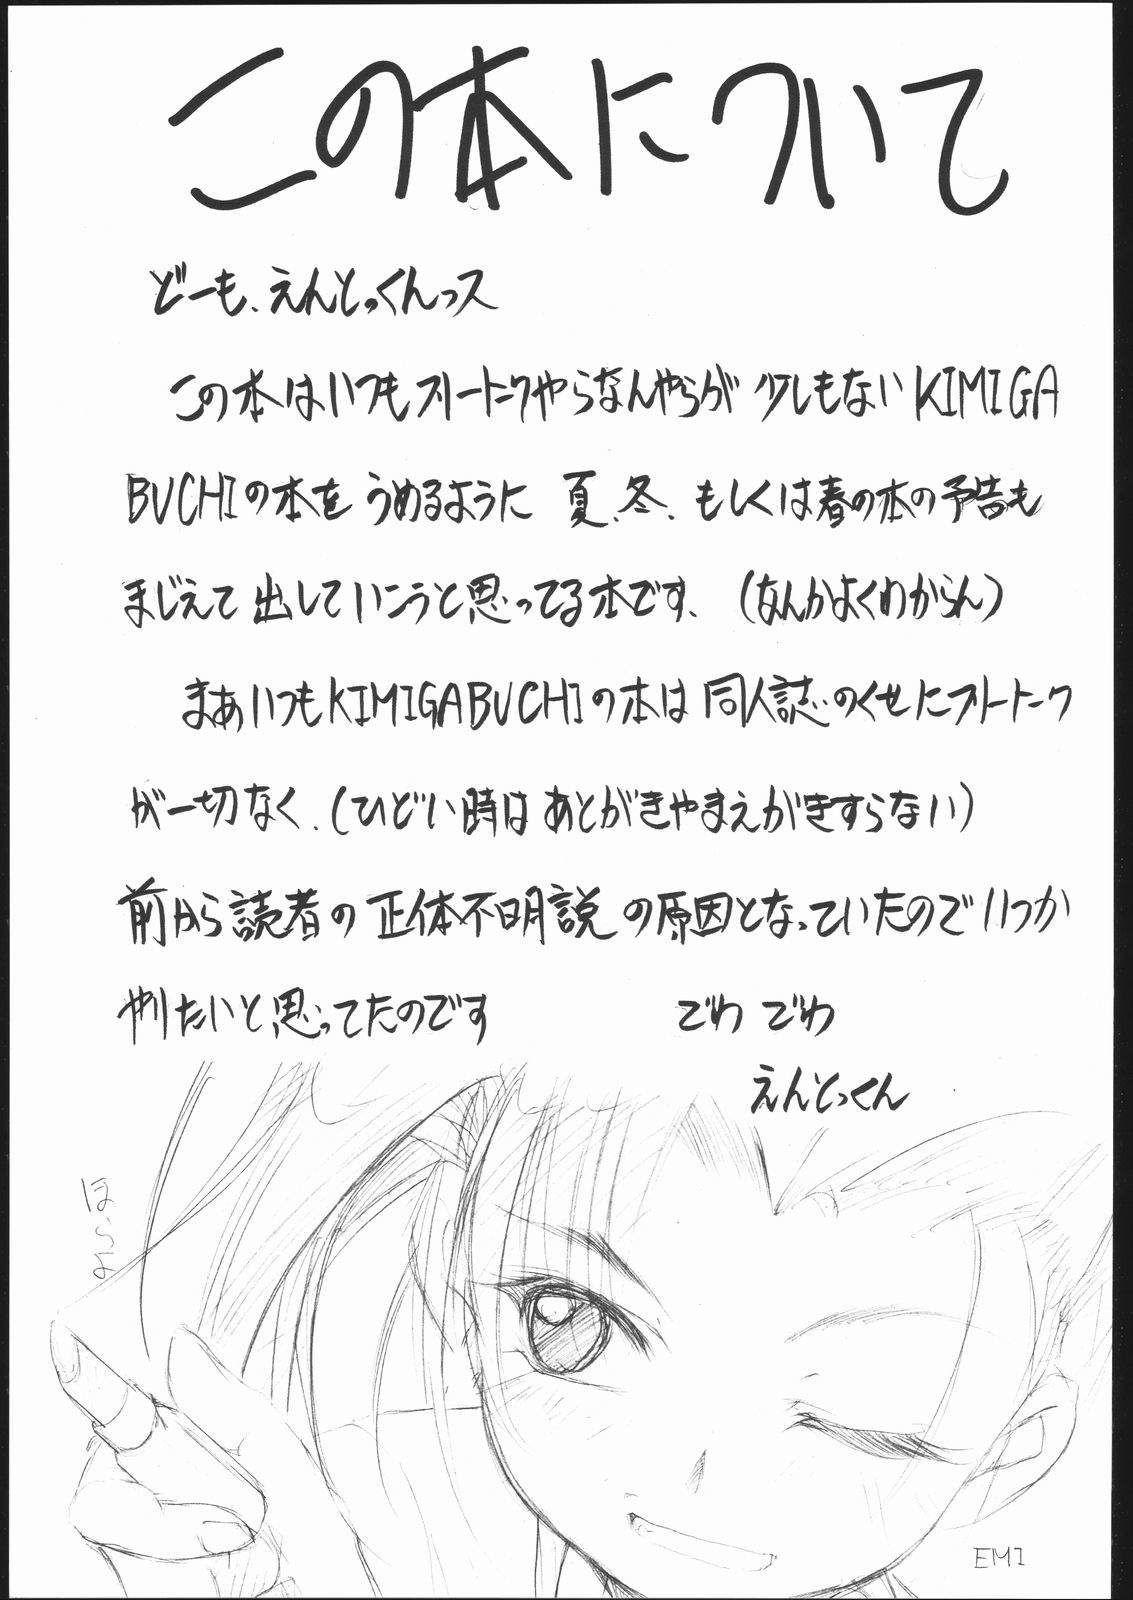 この本について
どーも、えんとっくんっス
この本はいつもフリートークやらなんやらが少しもないKIMIGA
BUCHIの本をうめるように夏、冬、もしくは春の本の予告も
まじえて出していこうと思ってる本です、(なんかよくわからん)
まあいつもKIMIGABUCHIの本は同人誌のくせにフリートーク
が一切なく、(ひどい時はあとがきやまえがきすらない)
前から読者の正体不明説の原因となっていたのでいつか
やりたいと思ってたのです
でわでわ
えんとっくん
EMI